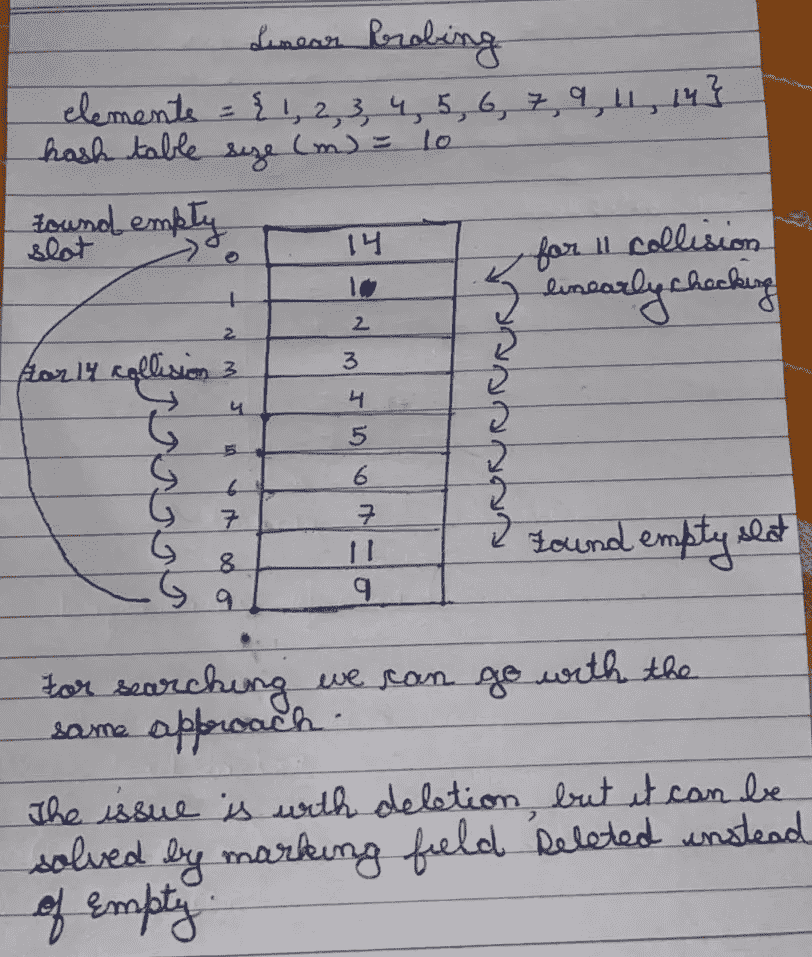 Linear Probing
elements = { 1, 2, 3, 4, 5, 6, 7, 9, 11, 14 }
hash table size (m) = 10
found empty
slot
0 14
1 1
2 2
3 3
4 4
5 5
6 6
7 7
8 11
9 9
for 11 collision
linearly checking
for 14 collision
found empty slot
For searching we can go with the
same approach.
The issue is with deletion, but it can be
solved by marking field Deleted instead
of Empty.